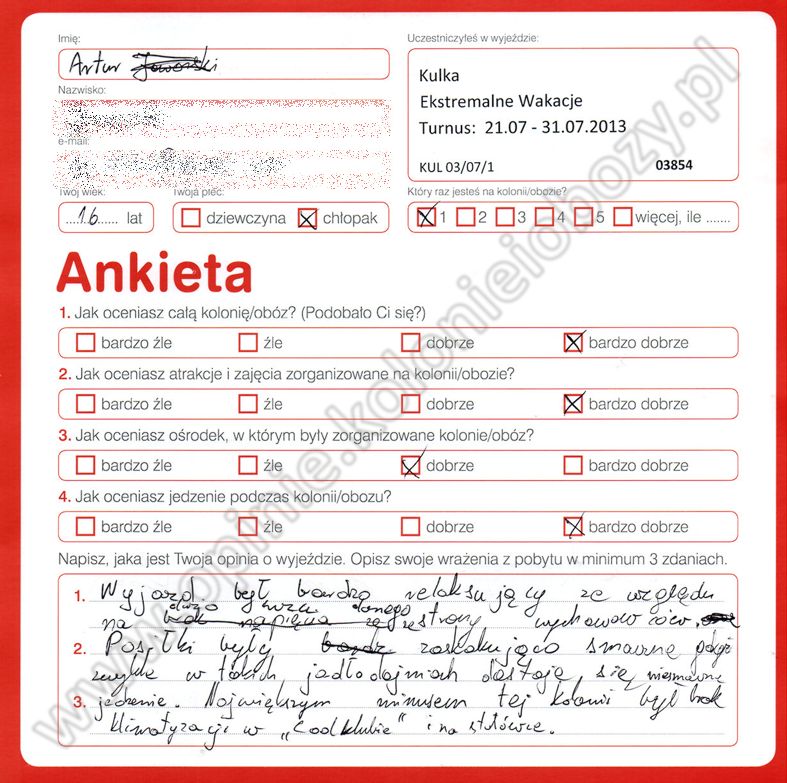 Imię:
Artur
Uczestniczyłeś w wyjeździe:
Kulka
Ekstremalne Wakacje
Turnus: 21.07 - 31.07.2013
KUL 03/07/1 03854
Nazwisko:
e-mail:
Twój wiek:
16 lat
Twoja płeć:
dziewczyna chłopak
Który raz jesteś na kolonii/obozie?
1 2 3 4 5 więcej, ile .......
Ankieta
1. Jak oceniasz całą kolonię/obóz? (Podobało Ci się?)
bardzo źle źle dobrze bardzo dobrze
2. Jak oceniasz atrakcje i zajęcia zorganizowane na kolonii/obozie?
bardzo źle źle dobrze bardzo dobrze
3. Jak oceniasz ośrodek, w którym były zorganizowane kolonie/obóz?
bardzo źle źle dobrze bardzo dobrze
4. Jak oceniasz jedzenie podczas kolonii/obozu?
bardzo źle źle dobrze bardzo dobrze
Napisz, jaka jest Twoja opinia o wyjeździe. Opisz swoje wrażenia z pobytu w minimum 3 zdaniach.
1. Wyjazd był bardzo relaksujący ze względu
na dużo danego ze strony wychowawców.
2. Posiłki były zaskakująco smaczne gdyż
zwykle w takich jadłodajniach dostają się niesmaczne
3. jedzenie. Największym minusem tej kolonii był brak
klimatyzacji w „Coolklubie" i na stołówce.
www.opinie.kolonieiobozy.pl